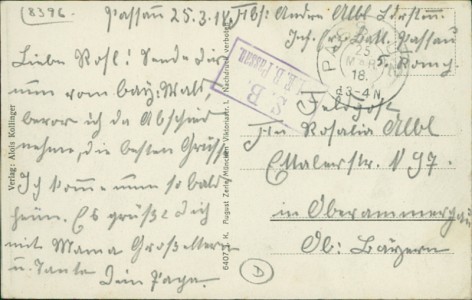 8396.
Passau 25.3.18. Abs: Andre Albl
Inf. Ers. Batt. Passau
5. Komp.
Liebe Rosl! Sende dir
nun vom bay. Wald,
bevor ich da Abschied
nehme, die besten Grüsse
Ich komme nun so bald
heim. Es grüßt Dich
mit Mama Großeltern
u. Tante Dein Papa.
S. B.
Verlag: Alois Kollinger
6407 K. August Zerle, München Nachdruck verboten
25
18.
3-4 N
Feldpost
An Rosalia Albl
Malerstr. N 97.
in Oberammergau
Ob: Bayern
D